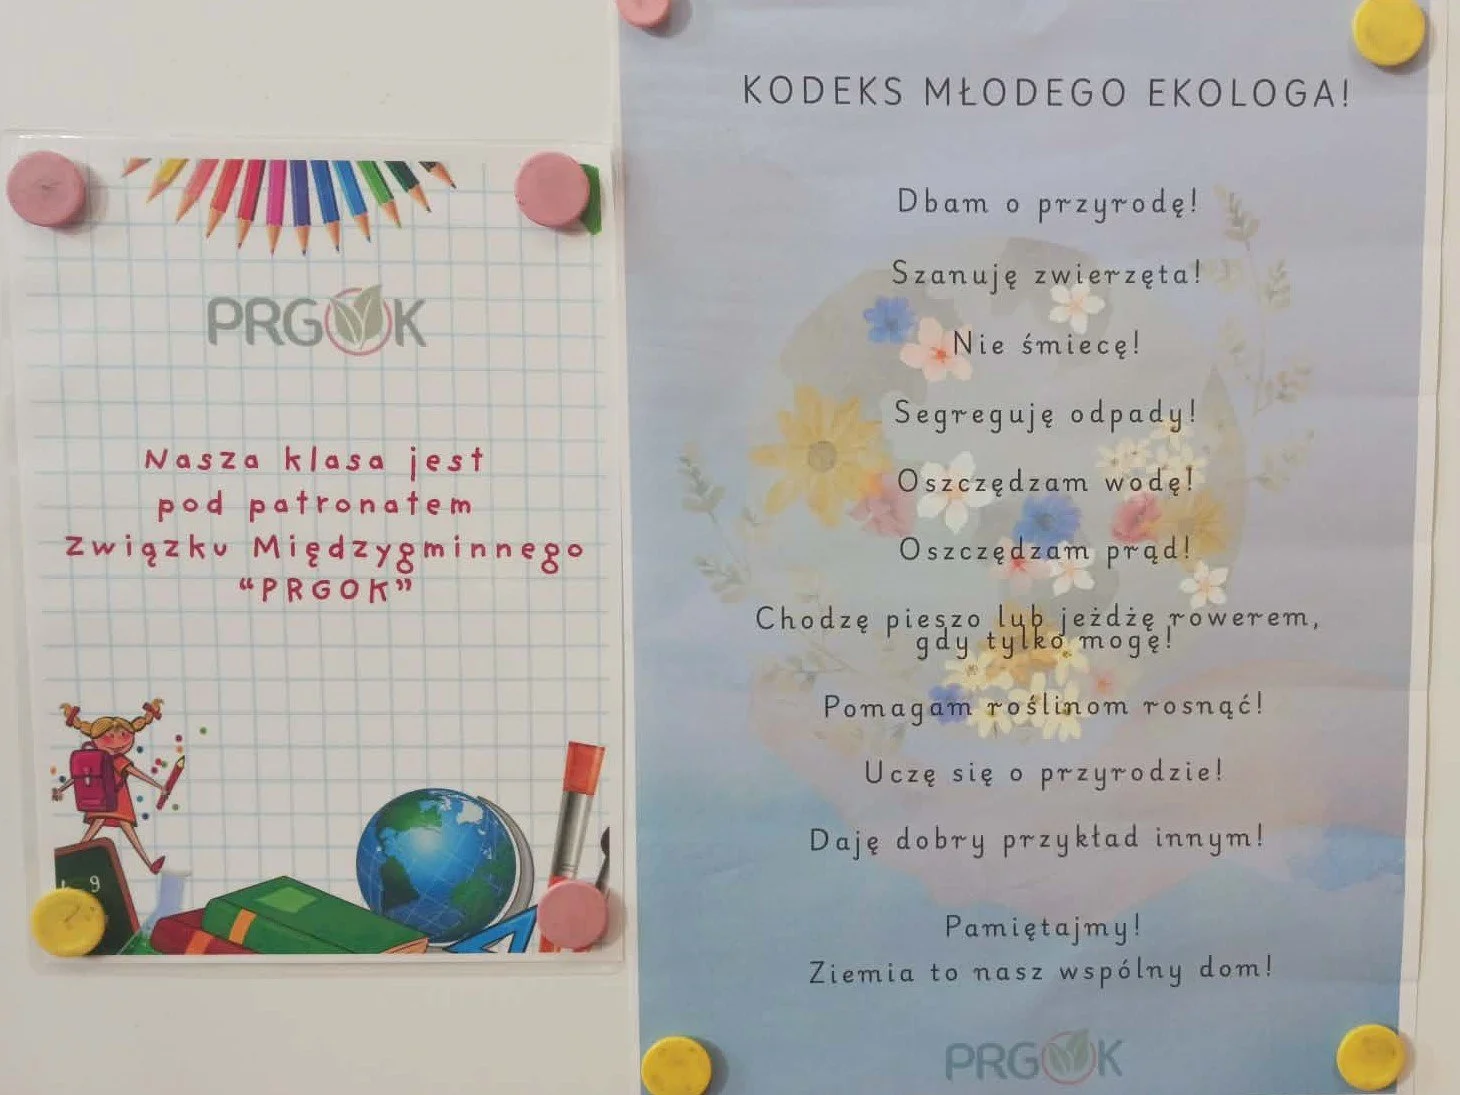 PRGOK
Nasza klasa jest
pod patronatem
Związku Międzygminnego
“PRGOK”
9
KODEKS MŁODEGO EKOLOGA!
Dbam o przyrodę!
Szanuję zwierzęta!
Nie śmiecę!
Segreguję odpady!
Oszczędzam wodę!
Oszczędzam prąd!
Chodzę pieszo lub jeżdżę rowerem,
gdy tylko mogę!
Pomagam roślinom rosnąć!
Uczę się o przyrodzie!
Daję dobry przykład innym!
Pamiętajmy!
Ziemia to nasz wspólny dom!
PRGOK